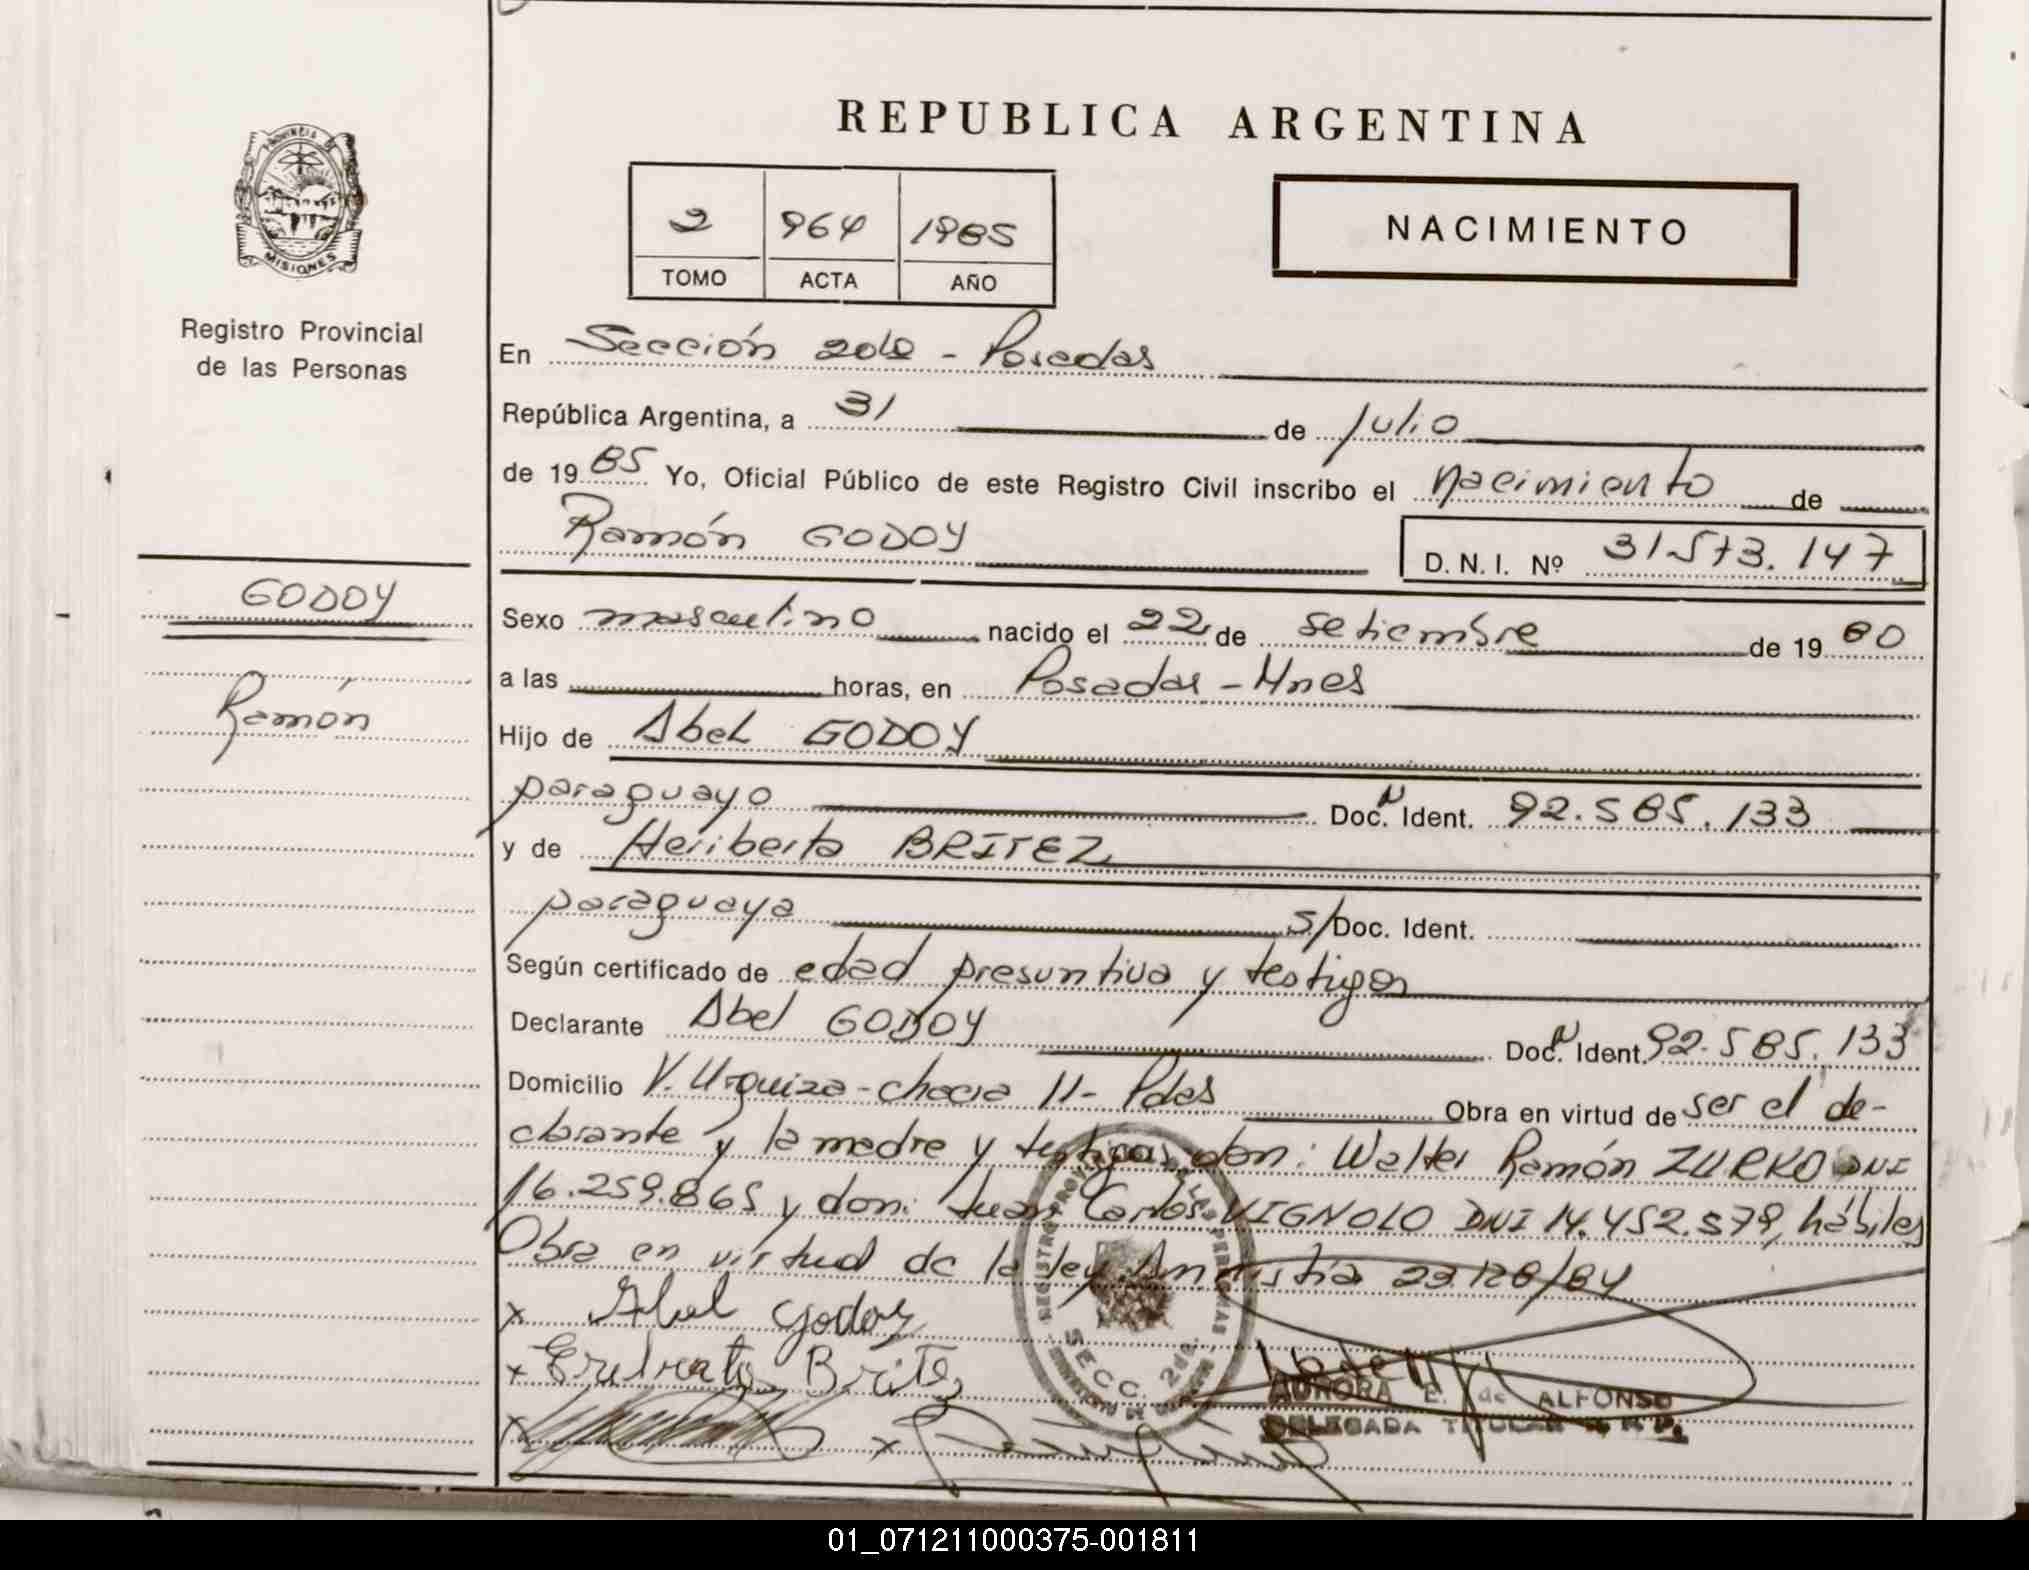 REPUBLICA ARGENTINA
PROVINCIA DE
MISIONES
Registro Provincial
de las Personas
2 964 1985
TOMO ACTA AÑO
NACIMIENTO
En Sección 2da - Posadas
República Argentina, a 31 de Julio
de 1985 Yo, Oficial Público de este Registro Civil inscribo el nacimiento de
Ramón GODOY
D. N. I. Nº 31.573.147
GODOY
Ramón
Sexo masculino nacido el 22 de setiembre de 1980
a las horas, en Posadas - Mnes
Hijo de Abel GODOY
paraguayo Doc. N Ident. 92.585.133
y de Heriberta BRITEZ
paraguaya s/Doc. Ident.
Según certificado de edad presuntiva y testigos
Declarante Abel GODOY Doc. N Ident. 92.585.133
Domicilio V. Urquiza - chacra 11 - Pdas Obra en virtud de ser el de-
clarante y la madre y testigos don: Walter Ramón ZURKO DNI
16.259.865 y don: Juan Carlos VIGNOLO DNI 14.452.579, hábiles
Obra en virtud de la ley Amnistía 23.128/84
x Abel Godoy
x Britez
x
x
SECC. 2da.
AURORA E. de ALFONSO
DELEGADA TITULAR R.P.P.
01_071211000375-001811